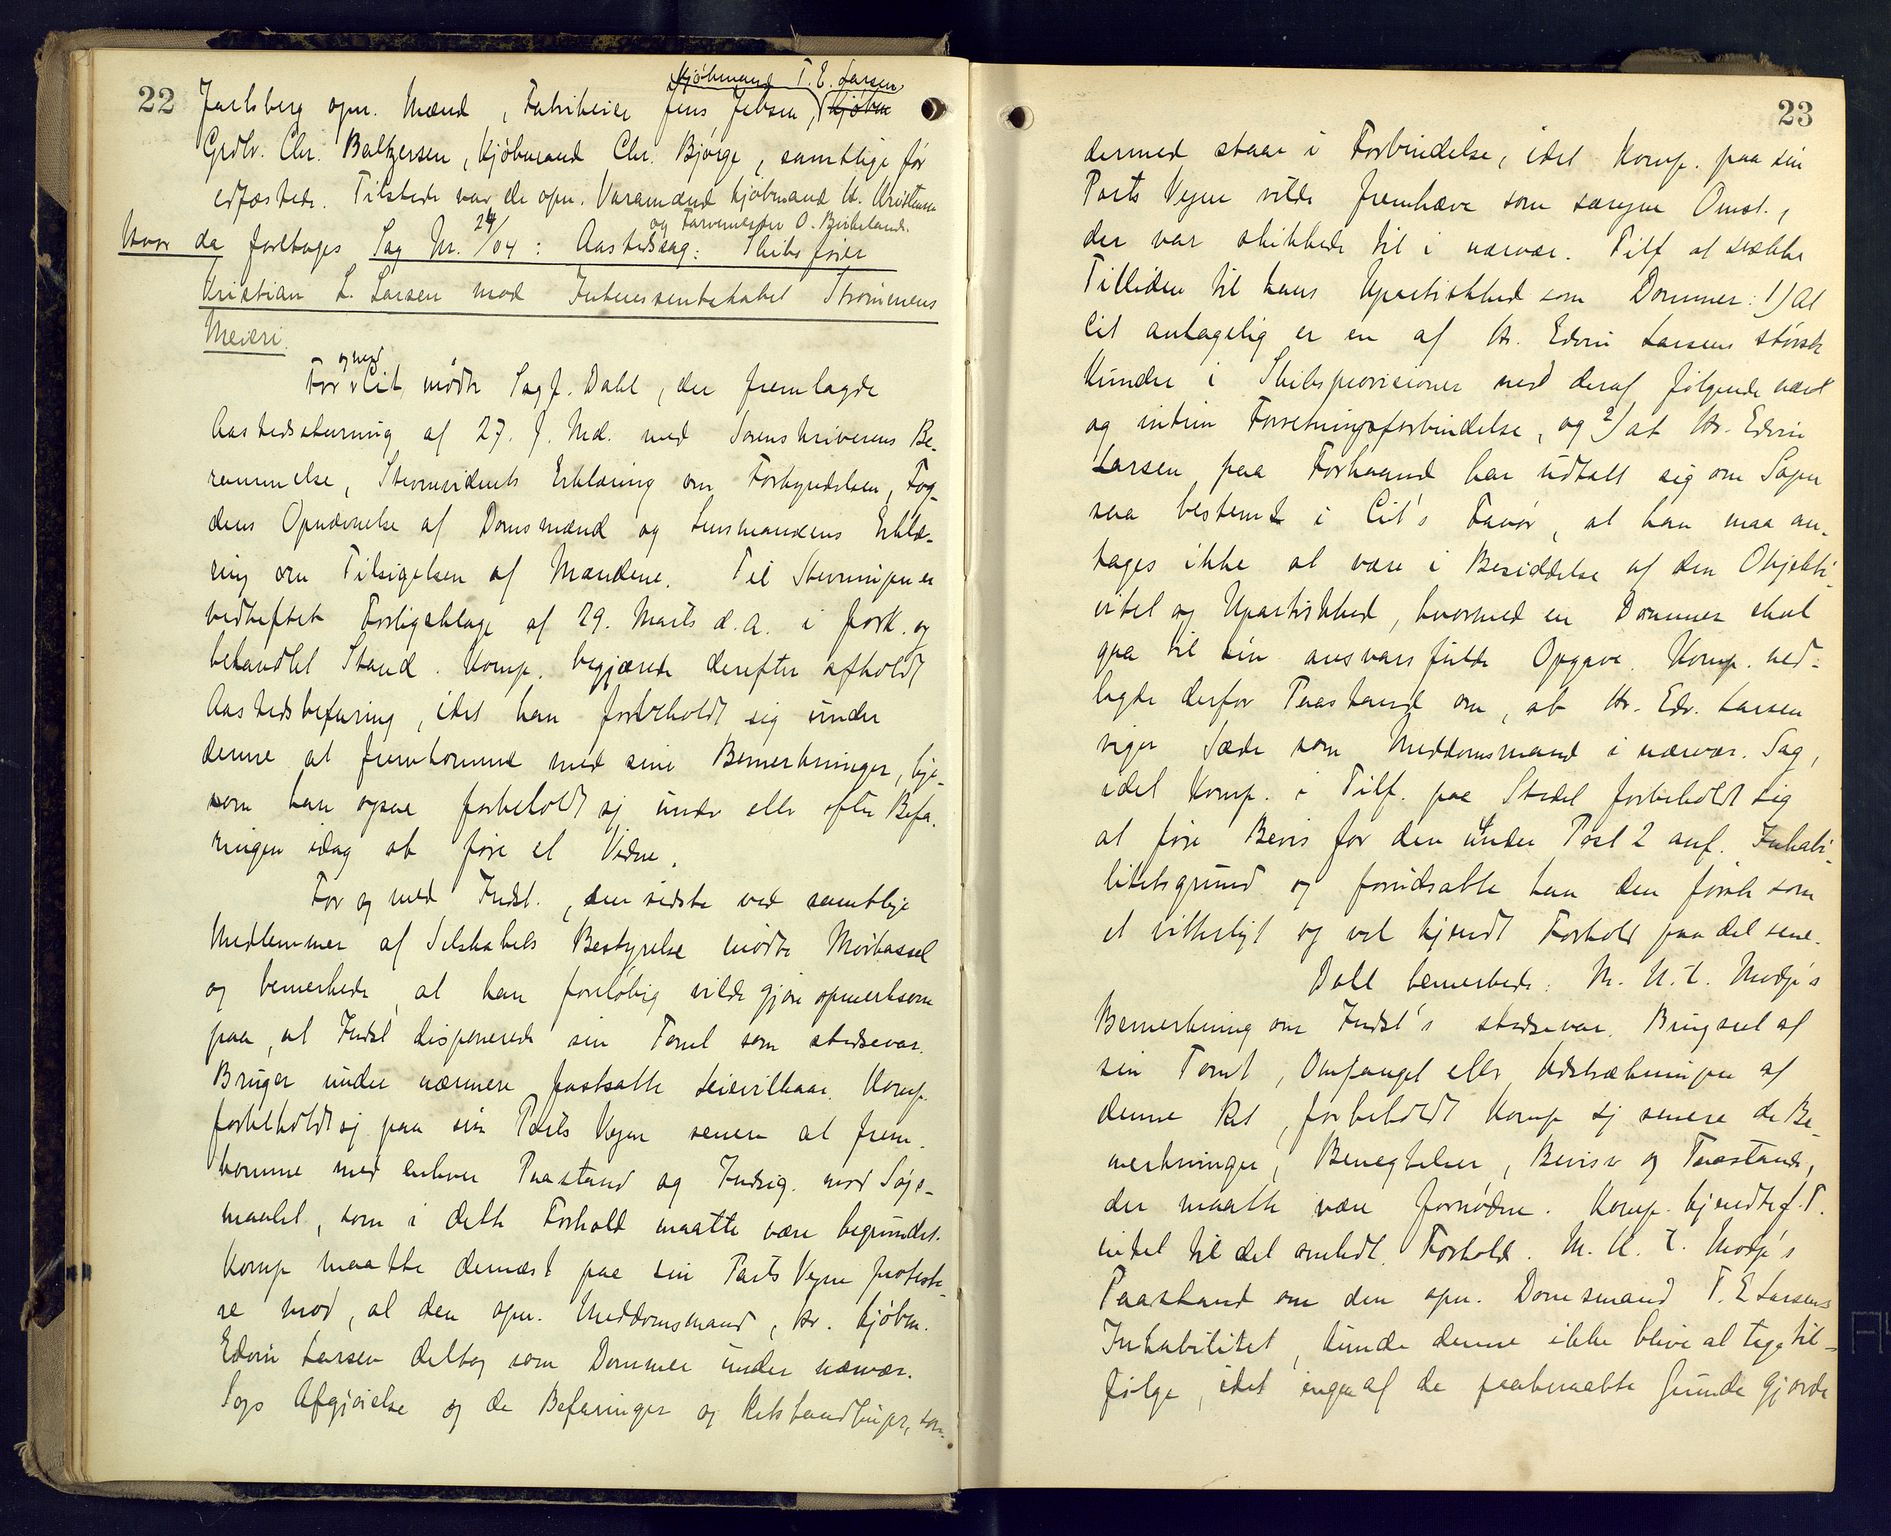 22
Kjøbmand T. E. Larsen
Jarlsberg opn. Mænd, Fabrikeier Jens Jebsen, Kjøbm
Grdbr. Chr. Baltzersen, Kjøbmand Chr. Bjørge, samtlige før
edfæstede. Tilstede var de opn. Varamænd Kjøbmand H. Kristensen
og Farvemester O. Birkeland.
Hvor da foretoges Sag Nr. 24/04: Aastedssag: Skibsfører
Kristian L. Larsen mod Interessentskabet Strømmens
Meieri.
For og med Cit. mødte Sagf. Dahl, der fremlagde
Aastedsstevning af 27. f. Md. med Sorenskriverens Be-
rammelse, Stevnevidnets Erklæring om Forkyndelsen, Fog-
dens Opnævnelse af Domsmænd og Lensmandens Erklæ-
ring om Tilsigelsen af Mændene. Til Stevningen er
vedheftet Forligsklage af 29. Marts d. A. i fork. og
behandlet Stand. Komp. begjærede derefter afholdt
Aastedsbefaring, idet han forbeholdt sig under
denne at fremkomme med sine Bemerkninger, lige-
som han ogsaa forbeholdt sig under eller efter Befa-
ringen idag at føre et Vidne.
For og med Indst., den sidste ved samtlige
Medlemmer af Selskabets Bestyrelse mødte Mørkassel
og bemerkede, at han foreløbig vilde gjøre opmerksom
paa, at Indst. disponerede sin Tomt som stedsevar.
Bruger under nærmere fastsatte Leievilkaar. Komp.
forbeholdt sig paa sin Parts Vegne senere at frem-
komme med enhver Paastand og Indsig. mod Søgs-
maalet, som i dette Forhold maatte være begrundet.
Komp. maatte dernæst paa sin Parts Vegne proteste-
re mod, at den opn. Meddomsmand, Hr. Kjøbm.
Edvin Larsen deltog som Dommer under nærvær.
Sags Afgjørelse og de Befaringer og Retshandlinger, som
23
dermed staar i Forbindelse, idet Komp. paa sin
Parts Vegne vilde fremhæve som særegne Omst.,
der var skikkede til i nærvær. Tilf. at svække
Tilliden til hans Upartiskhed som Dommer: 1) at
Cit. antagelig er en af Hr. Edvin Larsens største
Kunder i Skibsprovisioner med deraf følgende nært
og intim Forretningsforbindelse, og 2) at Hr. Edvin
Larsen paa Forhaand har udtalt sig om Sagen
saa bestemt i Cit's Favør, at han maa an-
tages ikke at være i Besiddelse af den Objekti-
vitet og Upartiskhed, hvormed en Dommer skal
gaa til sin ansvarsfulde Opgave. Komp. ned-
lagde derfor Paastand om, at Hr. Edv. Larsen
viger Sæde som Meddomsmand i nærvær. Sag,
idet Komp. i Tilf. paa Stedet forbeholdt sig
at føre Bevis for den under Post 2 anf. Inhabi-
litetsgrund og forudsatte han den første som
et vitterligt og vel kjendt Forhold paa det rene.
Dahl bemerkede: M. H. t. Modp's
Bemerkning om Indst's stedsevar. Brugsret af
sin Tomt, Omfanget eller Udstrækningen af
denne Ret, forbeholdt Komp. sig senere de Be-
merkninger, Benegtelser, Beviser og Paastande,
der maatte være fornødne. Komp. kjendte f. T.
intet til det omhdl. Forhold. M. H. t. Modp's
Paastand om den opn. Domsmand T. E. Larsens
Inhabilitet, kunde denne ikke blive at tage til-
følge, idet ingen af de paaberaabte Grunde gjorde